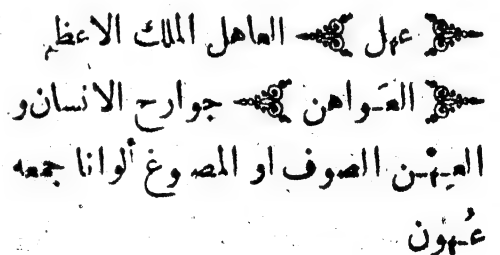 عهل العاهل الملك الاعظم
العَواهن جوارح الانسان و
العِهْن الصوف او المصوغ ألوانا جمعه
عُهون